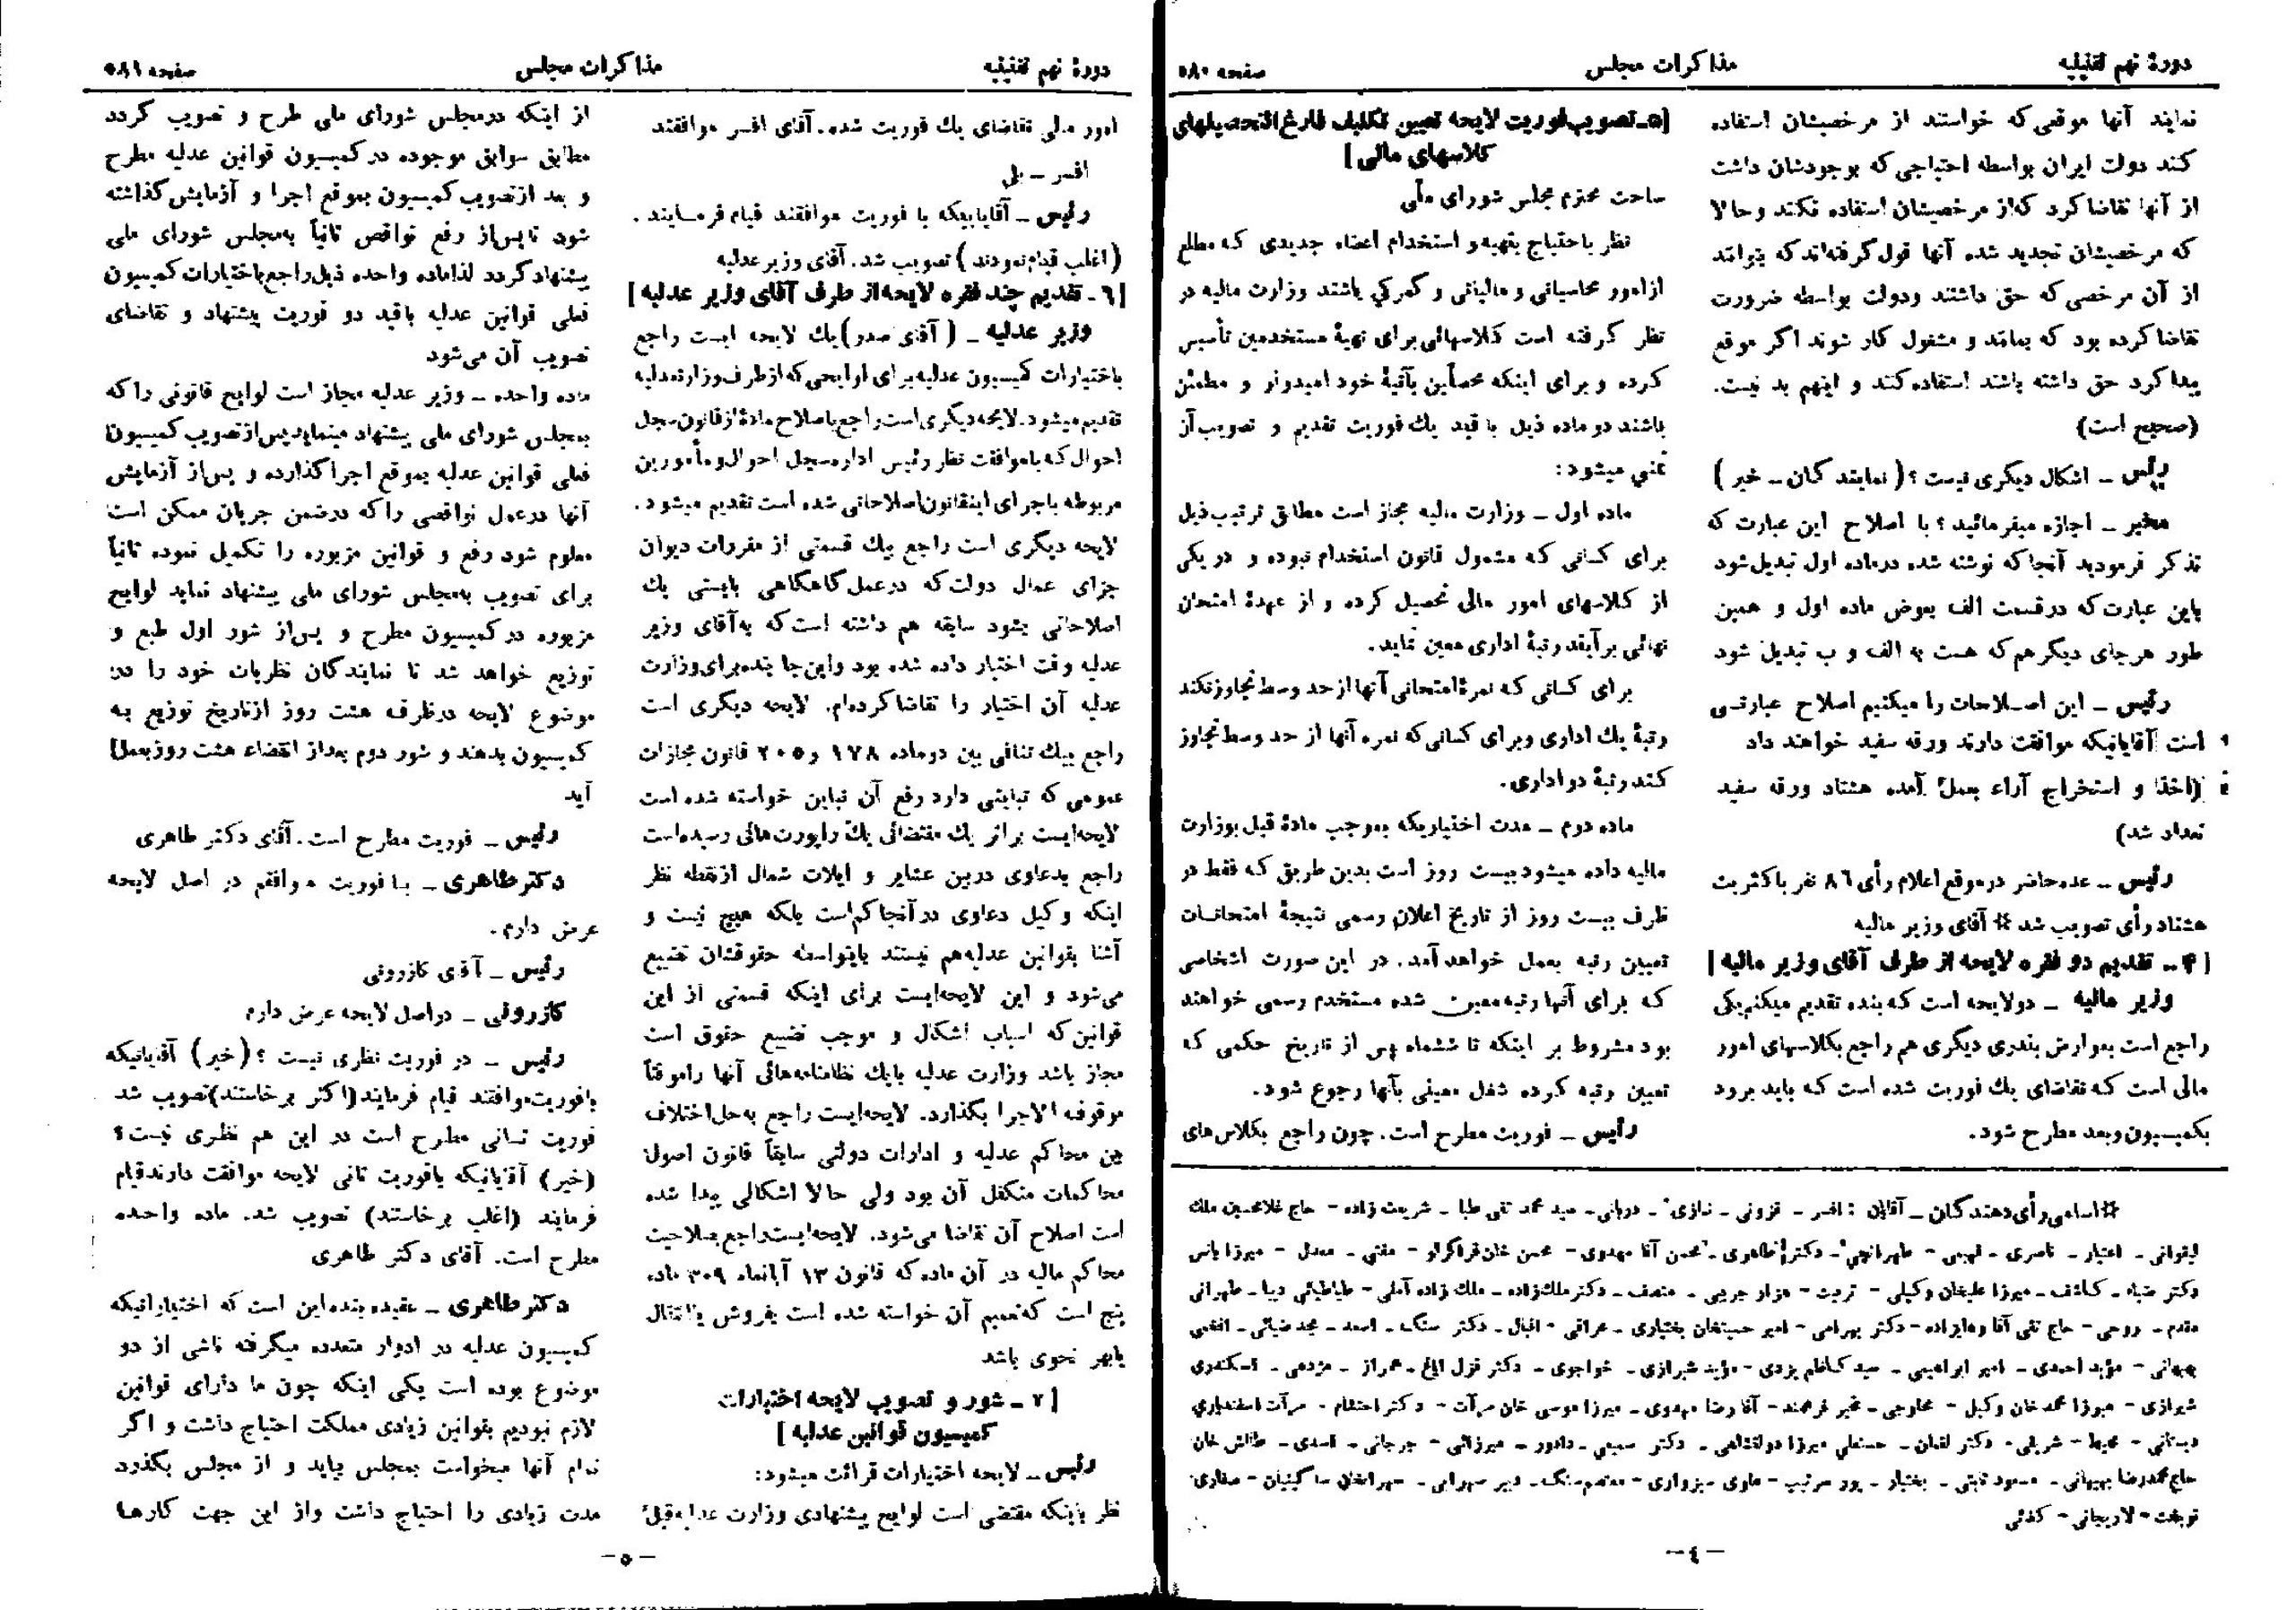 دورهٔ نهم تقنینیه
مذاکرات مجلس
صفحه ۵۸۰
نمایند آنها موقعی که خواستند از مرخصیشان استفاده
کنند دولت ایران بواسطه احتیاجی که بوجودشان داشت
از آنها تقاضا کرد که از مرخصیشان استفاده نکنند و حالا
که مرخصیشان تجدید شده آنها قول گرفته‌اند که بتوانند
از آن مرخصی که حق داشتند و دولت بواسطه ضرورت
تقاضا کرده بود که بمانند و مشغول کار شوند اگر موقع
پیدا کرد حق داشته باشند استفاده کنند و اینهم بد نیست.
(صحیح است)
رئیس ـ اشکال دیگری نیست؟ (نمایندگان ـ خیر)
مخبر ـ اجازه میفرمائید؟ با اصلاح این عبارت که
تذکر فرمودید آنجا که نوشته شده در ماده اول تبدیل شود
باین عبارت که در قسمت الف بعوض ماده اول و همین
طور هر جای دیگر هم که هست به الف و ب تبدیل شود
رئیس ـ این اصلاحات را میکنیم اصلاح عبارتی
است آقایانیکه موافقت دارند ورقه سفید خواهند داد
(اخذ و استخراج آراء بعمل آمده هشتاد ورقه سفید
تعداد شد)
رئیس ـ عده حاضر در موقع اعلام رأی ۸۶ نفر باکثریت
هشتاد رأی تصویب شد * آقای وزیر مالیه
[۴ ـ تقدیم دو فقره لایحه از طرف آقای وزیر مالیه]
وزیر مالیه ـ دو لایحه است که بنده تقدیم میکنم یکی
راجع است بعوارض بندری دیگری هم راجع بکلاسهای امور
مالی است که تقاضای یك فوریت شده است که باید برود
بکمیسیون و بعد مطرح شود.
[۵ ـ تصویب فوریت لایحه تعیین تکلیف فارغ التحصیلهای
کلاسهای مالی]
ساحت محترم مجلس شورای ملی
نظر باحتیاج بتهیه و استخدام اعضاء جدیدی که مطلع
از امور محاسباتی و مالیاتی و گمرکی باشند وزارت مالیه در
نظر گرفته است کلاسهائی برای تهیهٔ مستخدمین تأسیس
کرده و برای اینکه محصلین بآتیهٔ خود امیدوار و مطمئن
باشند دو ماده ذیل با قید یك فوریت تقدیم و تصویب آن
تمنی میشود:
ماده اول ـ وزارت مالیه مجاز است مطابق ترتیب ذیل
برای کسانی که مشمول قانون استخدام نبوده و در یکی
از کلاسهای امور مالی تحصیل کرده و از عهدهٔ امتحان
نهائی برآیند رتبهٔ اداری معین نماید.
برای کسانی که نمرهٔ امتحانی آنها از حد وسط تجاوز نکند
رتبهٔ یك اداری و برای کسانی که نمره آنها از حد وسط تجاوز
کند رتبهٔ دو اداری.
ماده دوم ـ مدت اختیاریکه بموجب مادهٔ قبل بوزارت
مالیه داده میشود بیست روز است بدین طریق که فقط در
ظرف بیست روز از تاریخ اعلان رسمی نتیجهٔ امتحانات
تعیین رتبه بعمل خواهد آمد. در این صورت اشخاصی
که برای آنها رتبه معین شده مستخدم رسمی خواهند
بود مشروط بر اینکه تا ششماه پس از تاریخ حکمی که
تعیین رتبه کرده شغل معینی بآنها رجوع شود.
رئیس ـ فوریت مطرح است. چون راجع بکلاس‌های
*اسامی رأی دهندگان ـ آقایان: افسر ـ قزونی ـ نمازی ـ دربانی ـ سید محمد تقی طبا ـ شریعت زاده ـ حاج غلامحسین ملك
لیقوانی ـ اعتبار ـ ناصری ـ فهیمی ـ طهرانچی ـ دکتر طاهری ـ محسن آقا مهدوی ـ محسن خان قراگزلو ـ مفتی ـ معدل ـ میرزا یانس
دکتر ضیاء ـ کاشف ـ میرزا علیخان وکیلی ـ تربیت ـ هزار جریبی ـ منصف ـ دکتر ملك زاده ـ ملك زاده آملی ـ طباطبائی دیبا ـ طهرانی
مقدم ـ روحی ـ حاج تقی آقا وهابزاده ـ دکتر بهرامی ـ امیر حسینخان بختیاری ـ عراقی ـ اقبال ـ دکتر سنگ ـ اسعد ـ مجد ضیائی ـ افخمی
بهبهانی ـ مؤید احمدی ـ امیر ابراهیمی ـ سید کاظم یزدی ـ مؤید شیرازی ـ خواجوی ـ دکتر قزل ایاغ ـ همراز ـ مژدهی ـ اسکندری
شیرازی ـ میرزا محمد خان وکیل ـ مخارجی ـ مخبر فرهمند ـ آقا رضا مهدوی ـ میرزا موسی خان مرآت ـ دکتر احتشام ـ مرآت اسفندیاری
دبستانی ـ محیط ـ شریفی ـ دکتر لقمان ـ حسنعلی میرزا دولتشاهی ـ دکتر سمیعی ـ دادور ـ میرزائی ـ جرجانی ـ اسدی ـ طالش خان
حاج محمد رضا بهبهانی ـ مسعود ثابتی ـ بختیار ـ پور سرتیپ ـ هاوی سبزواری ـ معتصم سنگ ـ دبیر سهرابی ـ سهراب خان ساگینیان ـ صفاری
نوبخت ـ لاریجانی ـ کفائی
ـ ٤ ـ
دورهٔ نهم تقنینیه
مذاکرات مجلس
صفحه ۵۸۱
امور مالی تقاضای یك فوریت شده. آقای افسر موافقند
افسر ـ بلی
رئیس ـ آقایانیکه با فوریت موافقند قیام فرمایند.
(اغلب قیام نمودند) تصویب شد. آقای وزیر عدلیه
[٦ ـ تقدیم چند فقره لایحه از طرف آقای وزیر عدلیه]
وزیر عدلیه ـ (آقای صدر) یك لایحه ایست راجع
باختیارات کمیسیون عدلیه برای لوایحی که از طرف وزارت عدلیه
تقدیم میشود. لایحه دیگری است راجع باصلاح مادهٔ از قانون سجل
احوال که با موافقت نظر رئیس اداره سجل احوال و مأمورین
مربوطه باجرای اینقانون اصلاحاتی شده است تقدیم میشود.
لایحه دیگری است راجع یك قسمتی از مقررات دیوان
جزای عمال دولت که در عمل گاهگاهی بایستی یك
اصلاحاتی بشود سابقه هم داشته است که به آقای وزیر
عدلیه وقت اختیار داده شده بود و این جا بنده برای وزارت
عدلیه آن اختیار را تقاضا کرده‌ام. لایحه دیگری است
راجع بیك تنافی بین دو ماده ۱۷۸ و ۲۰۵ قانون مجازات
عمومی که تباینی دارد رفع آن تباین خواسته شده است
لایحه‌ایست بر اثر یك مقتضائی یك راپورت‌هائی رسیده است
راجع بدعاوی در بین عشایر و ایلات شمال از نقطه نظر
اینکه وکیل دعاوی در آنجا کم است بلکه هیچ نیست و
آشنا بقوانین عدلیه هم نیستند باینواسطه حقوقشان تضییع
می‌شود و این لایحه‌ایست برای اینکه قسمتی از این
قوانین که اسباب اشکال و موجب تضییع حقوق است
مجاز باشد وزارت عدلیه با یك نظامنامه‌هائی آنها را موقتاً
موقوف الاجرا بگذارد. لایحه‌ایست راجع به حل اختلاف
بین محاکم عدلیه و ادارات دولتی سابقاً قانون اصول
محاکمات متکفل آن بود ولی حالا اشکالی پیدا شده
است اصلاح آن تقاضا می‌شود. لایحه‌ایست راجع بصلاحیت
محاکم مالیه در آن ماده که قانون ۱۳ آبانماه ۳۰۹ ماده
پنج است که تعمیم آن خواسته شده است بفروش یا انتقال
یا بهر نحوی باشد
[۷ ـ شور و تصویب لایحه اختیارات
کمیسیون قوانین عدلیه]
رئیس ـ لایحه اختیارات قرائت میشود:
نظر باینکه مقتضی است لوایح پیشنهادی وزارت عدلیه قبل
از اینکه در مجلس شورای ملی طرح و تصویب گردد
مطابق سوابق موجوده در کمیسیون قوانین عدلیه مطرح
و بعد از تصویب کمیسیون بموقع اجرا و آزمایش گذاشته
شود تا پس از رفع نواقص ثانیاً به مجلس شورای ملی
پیشنهاد گردد لذا ماده واحده ذیل راجع باختیارات کمیسیون
فعلی قوانین عدلیه با قید دو فوریت پیشنهاد و تقاضای
تصویب آن می‌شود
ماده واحده ـ وزیر عدلیه مجاز است لوایح قانونی را که
بمجلس شورای ملی پیشنهاد مینماید پس از تصویب کمیسیون
فعلی قوانین عدلیه بموقع اجرا گذارده و پس از آزمایش
آنها در عمل نواقصی را که در ضمن جریان ممکن است
معلوم شود رفع و قوانین مزبوره را تکمیل نموده ثانیاً
برای تصویب به مجلس شورای ملی پیشنهاد نماید لوایح
مزبوره در کمیسیون مطرح و پس از شور اول طبع و
توزیع خواهد شد تا نمایندگان نظریات خود را در
موضوع لایحه در ظرف هشت روز از تاریخ توزیع به
کمیسیون بدهند و شور دوم بعد از انقضاء هشت روز بعمل
آید
رئیس ـ فوریت مطرح است. آقای دکتر طاهری
دکتر طاهری ـ با فوریت موافقم در اصل لایحه
عرض دارم.
رئیس ـ آقای کازرونی
کازرونی ـ در اصل لایحه عرض دارم
رئیس ـ در فوریت نظری نیست؟ (خیر) آقایانیکه
با فوریت موافقند قیام فرمایند (اکثر برخاستند) تصویب شد
فوریت ثانی مطرح است در این هم نظری نیست؟
(خیر) آقایانیکه با فوریت ثانی لایحه موافقت دارند قیام
فرمایند (اغلب برخاستند) تصویب شد. ماده واحده
مطرح است. آقای دکتر طاهری
دکتر طاهری ـ عقیده بنده این است که اختیاراتیکه
کمیسیون عدلیه در ادوار متعدده میگرفته ناشی از دو
موضوع بوده است یکی اینکه چون ما دارای قوانین
لازم نبودیم بقوانین زیادی مملکت احتیاج داشت و اگر
تمام آنها میخواست بمجلس بیاید و از مجلس بگذرد
مدت زیادی را احتیاج داشت و از این جهت کارها
ـ ۵ ـ